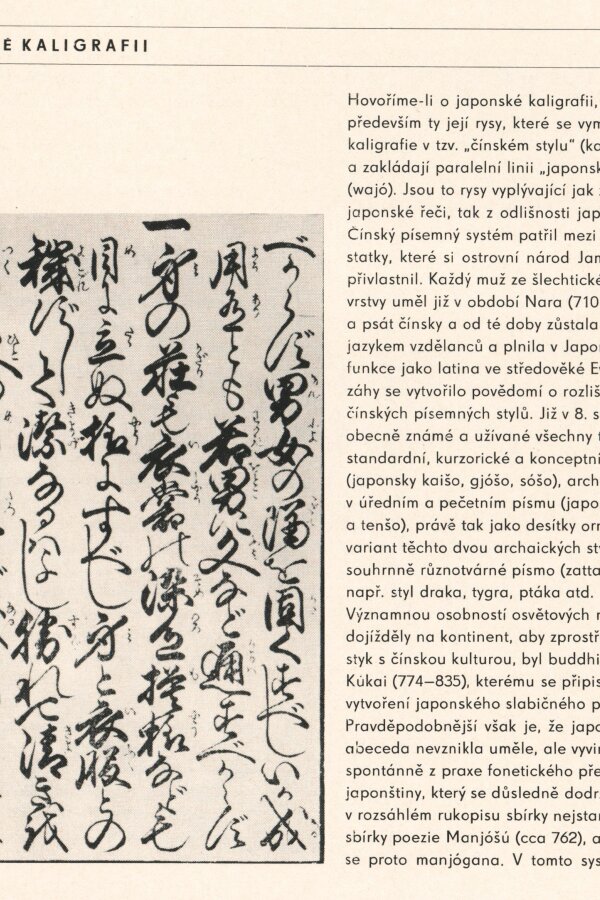 É KALIGRAFII
べからず男女の隔を固くすべしいか成
用ありとも若男に文など通すべからず
一身の荘も衣裳の染色模様なども
目に立ぬ様にすべし身と衣服との
穢ずして潔なるはよし勝れて清を
Hovoříme-li o japonské kaligrafii,
především ty její rysy, které se vym
kaligrafie v tzv. „čínském stylu“ (ka
a zakládají paralelní linii „japonsk
(wajó). Jsou to rysy vyplývající jak z
japonské řeči, tak z odlišnosti jap
Čínský písemný systém patřil mezi
statky, které si ostrovní národ Jam
přivlastnil. Každý muž ze šlechtické
vrstvy uměl již v období Nara (710
a psát čínsky a od té doby zůstala
jazykem vzdělanců a plnila v Japon
funkce jako latina ve středověké Ev
záhy se vytvořilo povědomí o rozliš
čínských písemných stylů. Již v 8. s
obecně známé a užívané všechny t
standardní, kurzorické a konceptní
(japonsky kaišo, gjóšo, sóšo), arch
v úředním a pečetním písmu (japo
a tenšo), právě tak jako desítky orn
variant těchto dvou archaických sty
souhrnně různotvárné písmo (zatta
např. styl draka, tygra, ptáka atd.
Významnou osobností osvětových m
dojížděly na kontinent, aby zprostř
styk s čínskou kulturou, byl buddhi
Kúkai (774–835), kterému se připis
vytvoření japonského slabičného p
Pravděpodobnější však je, že japo
abeceda nevznikla uměle, ale vyvin
spontánně z praxe fonetického pře
japonštiny, který se důsledně dodrž
v rozsáhlém rukopisu sbírky nejstar
sbírky poezie Manjóšú (cca 762), a
se proto manjógana. V tomto sys